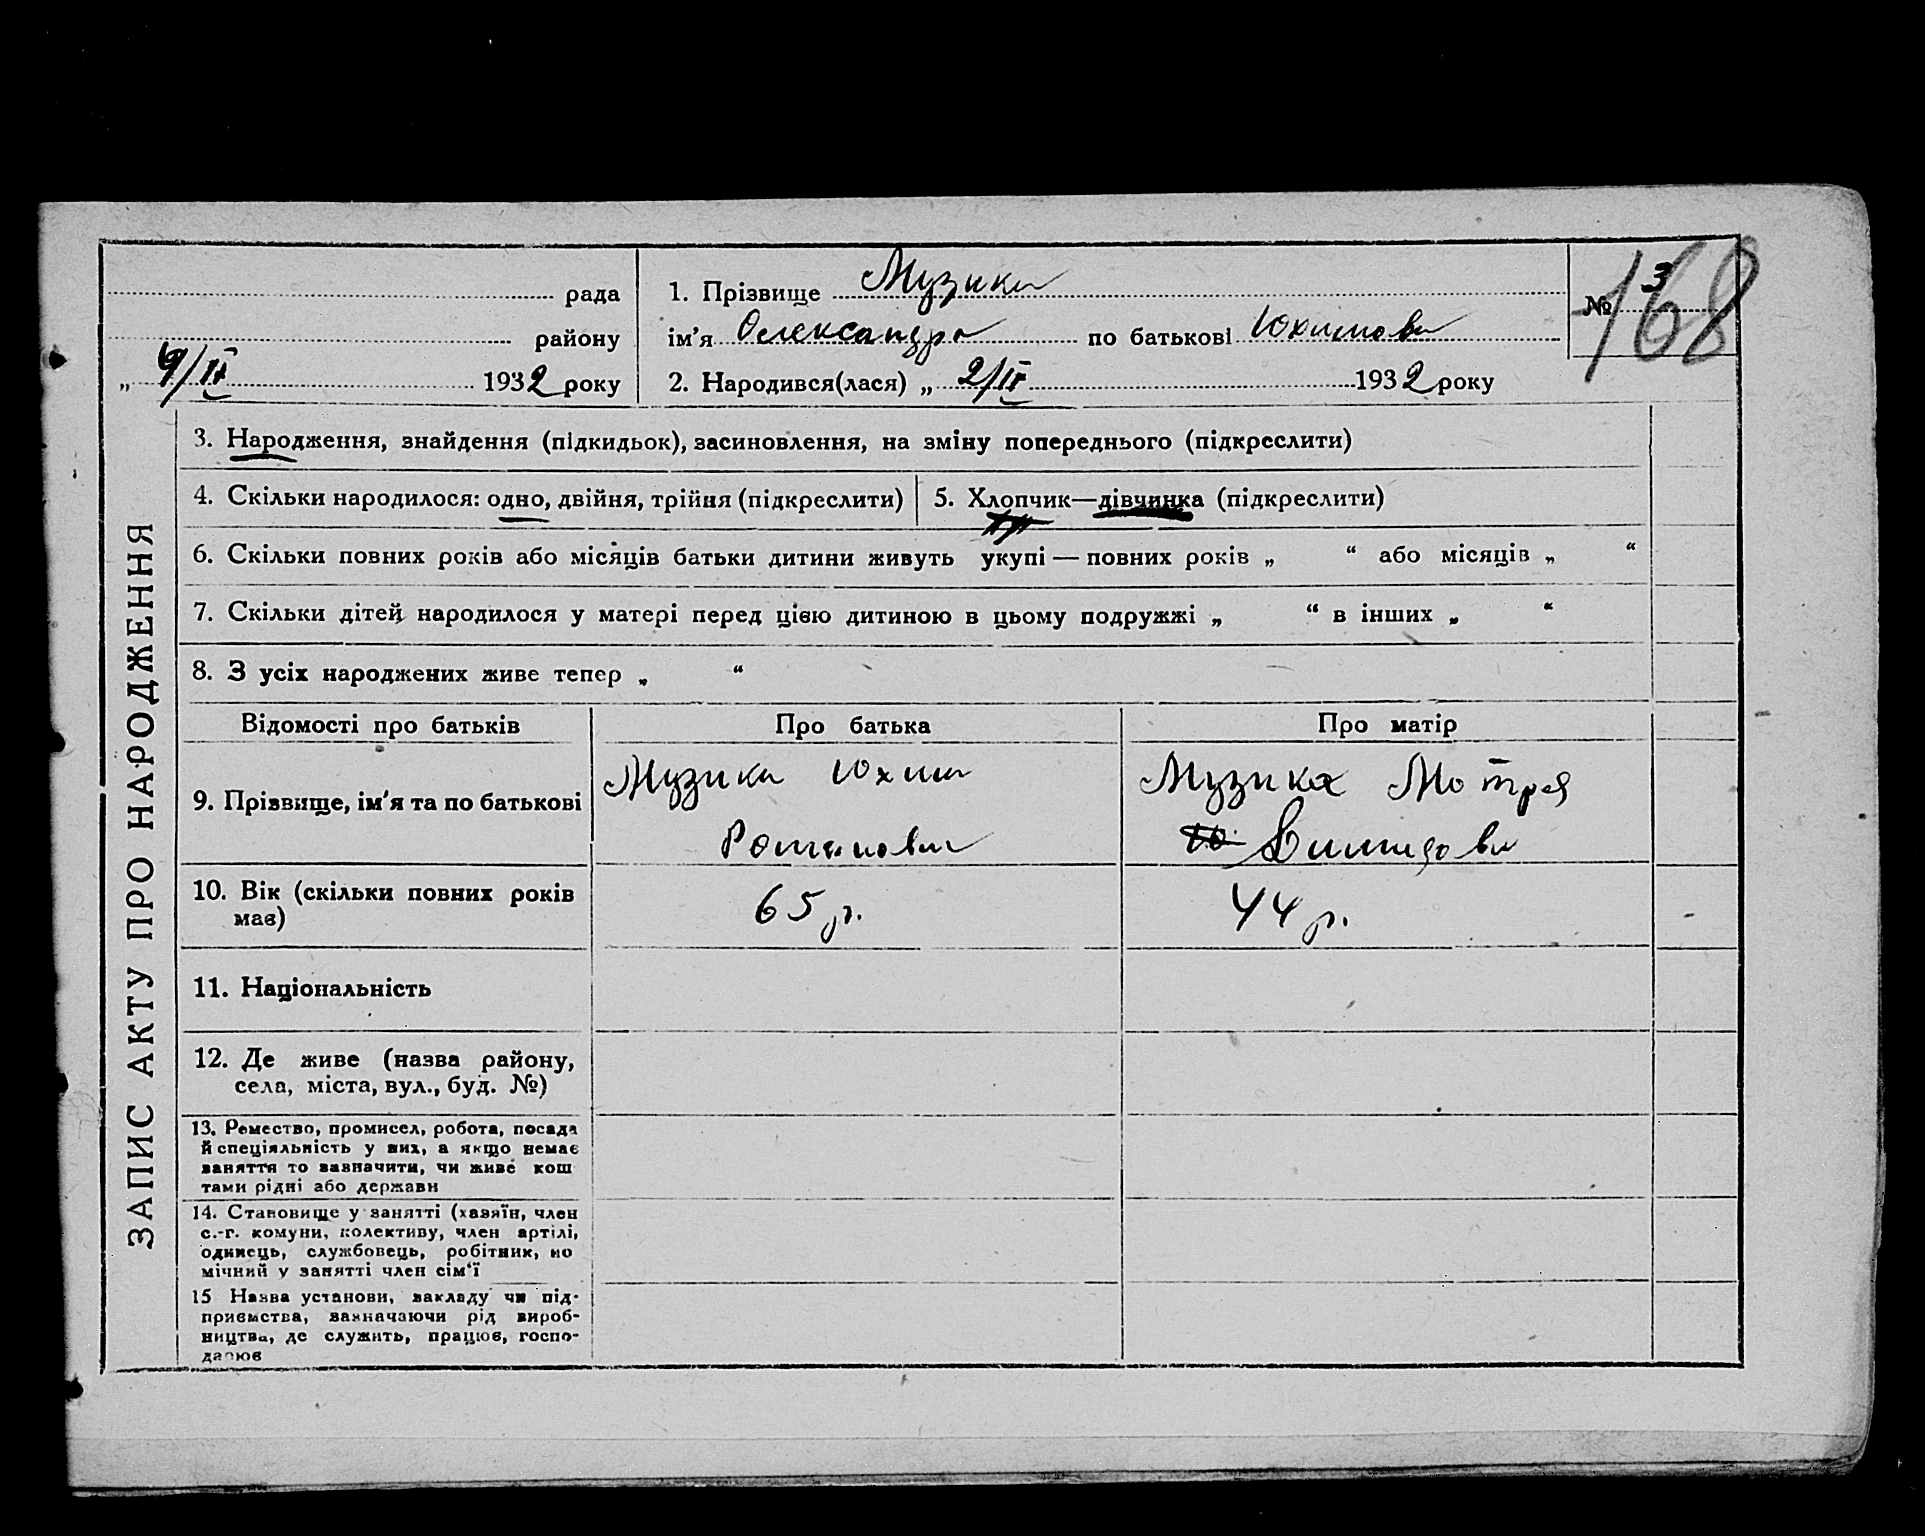 рада
району
„ 9/IV 1932 року
1. Прізвище Музика
ім’я Олександра по батькові Юхимовн
2. Народився(лася) „ 2/IV 1932 року
№ 3
168
ЗАПИС АКТУ ПРО НАРОДЖЕННЯ
3. Народження, знайдення (підкидьок), засиновлення, на зміну попереднього (підкреслити)
4. Скільки народилося: одно, двійня, трійня (підкреслити)
5. Хлопчик—дівчинка (підкреслити)
6. Скільки повних років або місяців батьки дитини живуть укупі — повних років „ “ або місяців „ “
7. Скільки дітей народилося у матері перед цією дитиною в цьому подружжі „ “ в інших „ “
8. З усіх народжених живе тепер „ “
Відомості про батьків Про батька Про матір
9. Прізвище, ім’я та по батькові
Музика Юхим
Романович
Музика Мотря
10. Вік (скільки повних років
має)
65 р.
44 р.
11. Національність
12. Де живе (назва району,
села, міста, вул., буд. №)
13. Ремество, промисел, робота, посада
й спеціяльність у них, а якщо немає
заняття то зазначити, чи живе кош
тами рідні або держави
14. Становище у занятті (хазяїн, член
с.-г. комуни, колективу, член артілі,
одинець, службовець, робітник, по
мічний у занятті член сім‘ї
15 Назва установи, закладу чи під-
приємства, зазначаючи рід вироб-
ництва, де служить, працює, госпо-
дарює